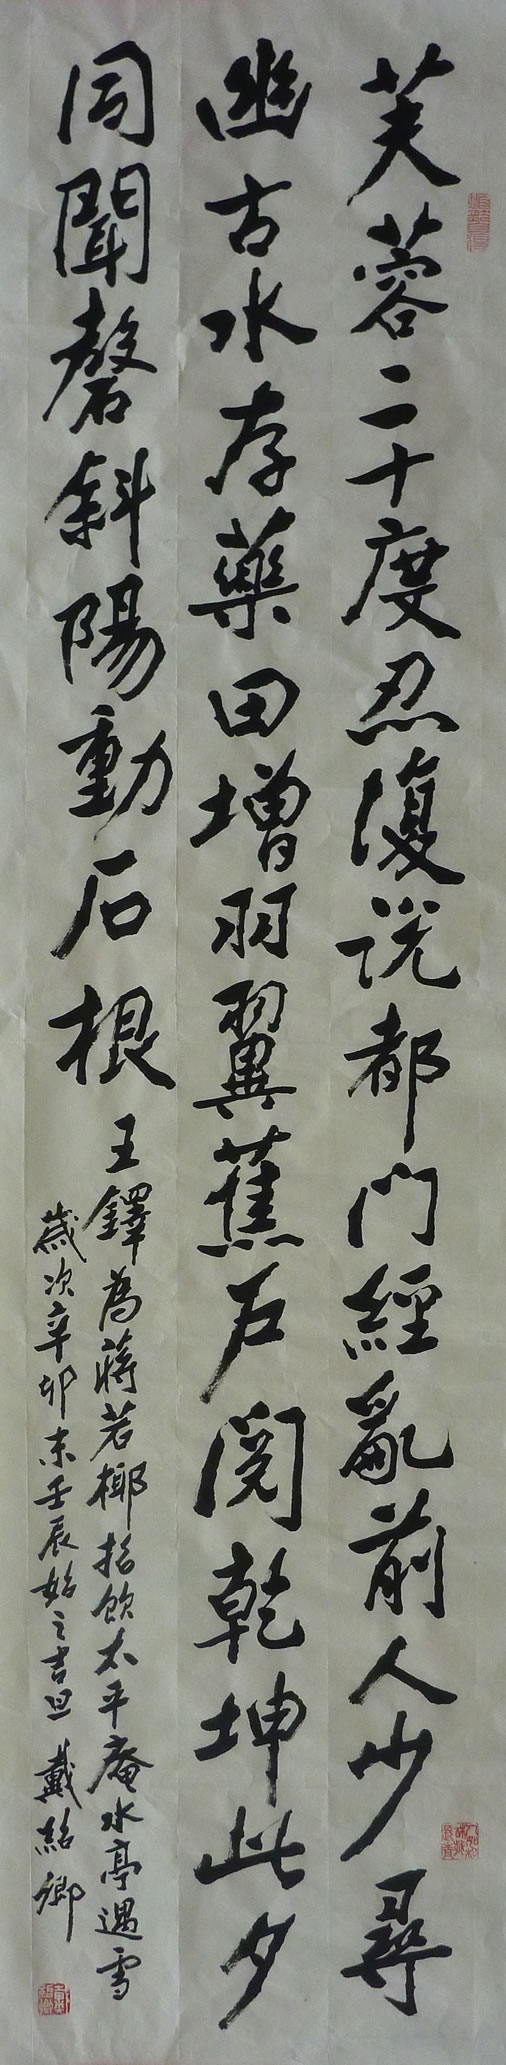 芙蓉二十度忍復说都门經亂前人少尋
幽古水存藥田增羽翼蕉户閱乾坤此夕
同聞磬斜陽動石根
王鐸為蔣若椰招飲太平庵水亭遇雪
歲次辛卯末壬辰始之吉旦 戴紹卿